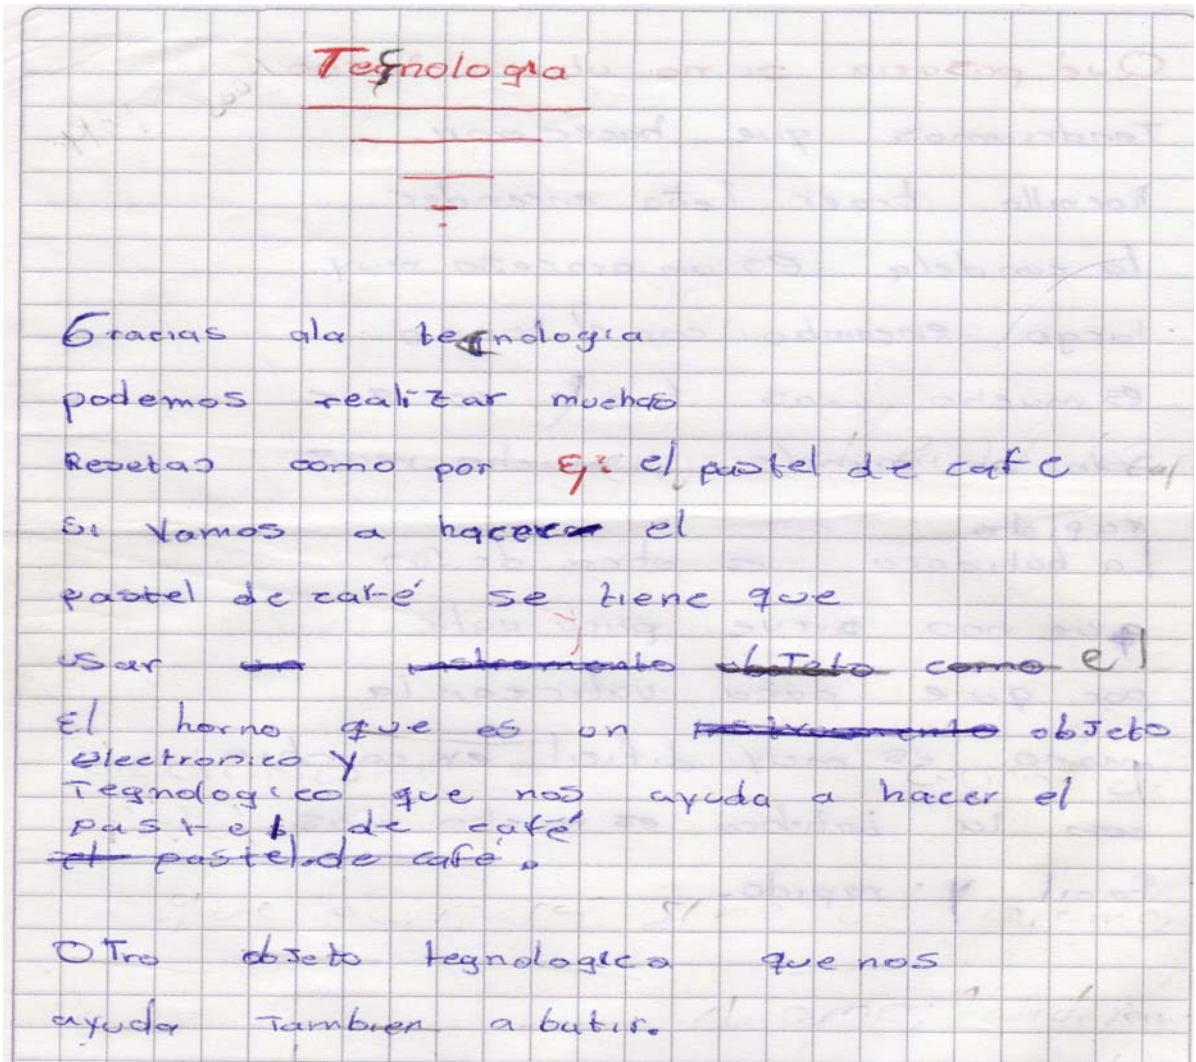 Tecnologia
Gracias ala tecnologia
podemos realizar muchas
Resetas como por Ej: el pastel de cafe
Si Vamos a hacer el
pastel de café se tiene que
usar un instrumento objeto como el
El horno que es un instrumento objeto
electronico y
Tegnologico que nos ayuda a hacer el
pastel de café
el pastel de café.
Otro objeto tegnologico que nos
ayuda Tambien a batir.